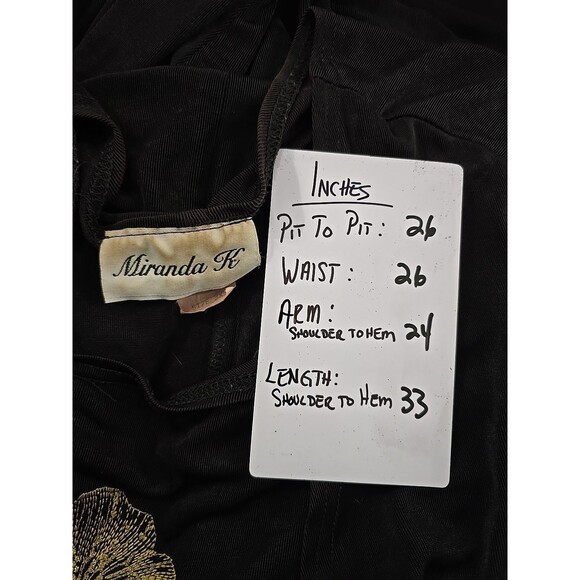 Miranda K
INCHES
PIT TO PIT: 26
WAIST: 26
ARM:
SHOULDER TO HEM 24
LENGTH:
SHOULDER TO HEM 33